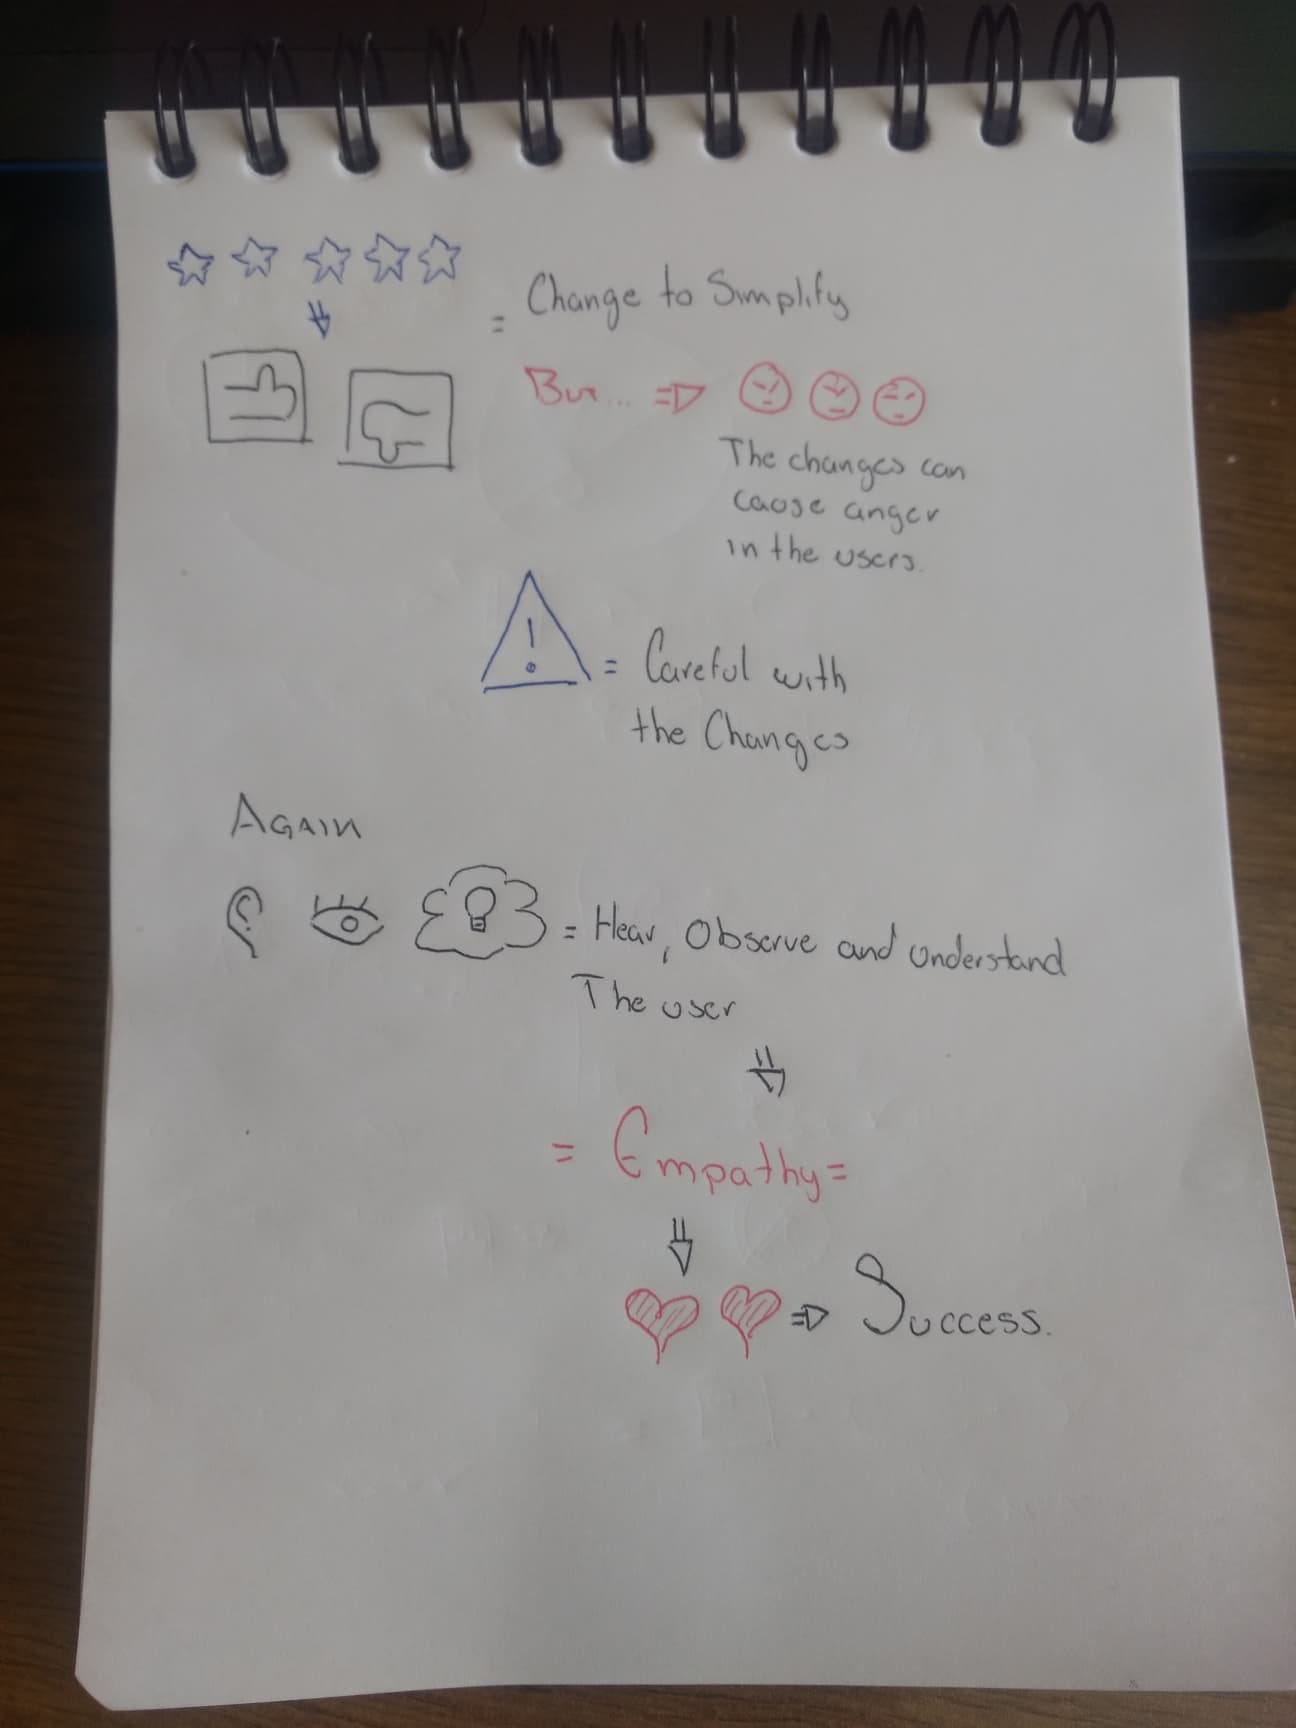 = Change to Simplify
But... ⇒
The changes can
cause anger
in the users.
! = Careful with
the Changes
AGAIN
= Hear, Observe and understand
The user
= Empathy =
⇒ Success.